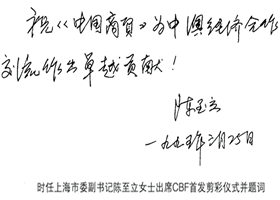 祝《中国商贸》为中澳经济合作
交流作出卓越贡献！
陈至立
一九九五年三月25日
时任上海市委副书记陈至立女士出席CBF首发剪彩仪式并题词